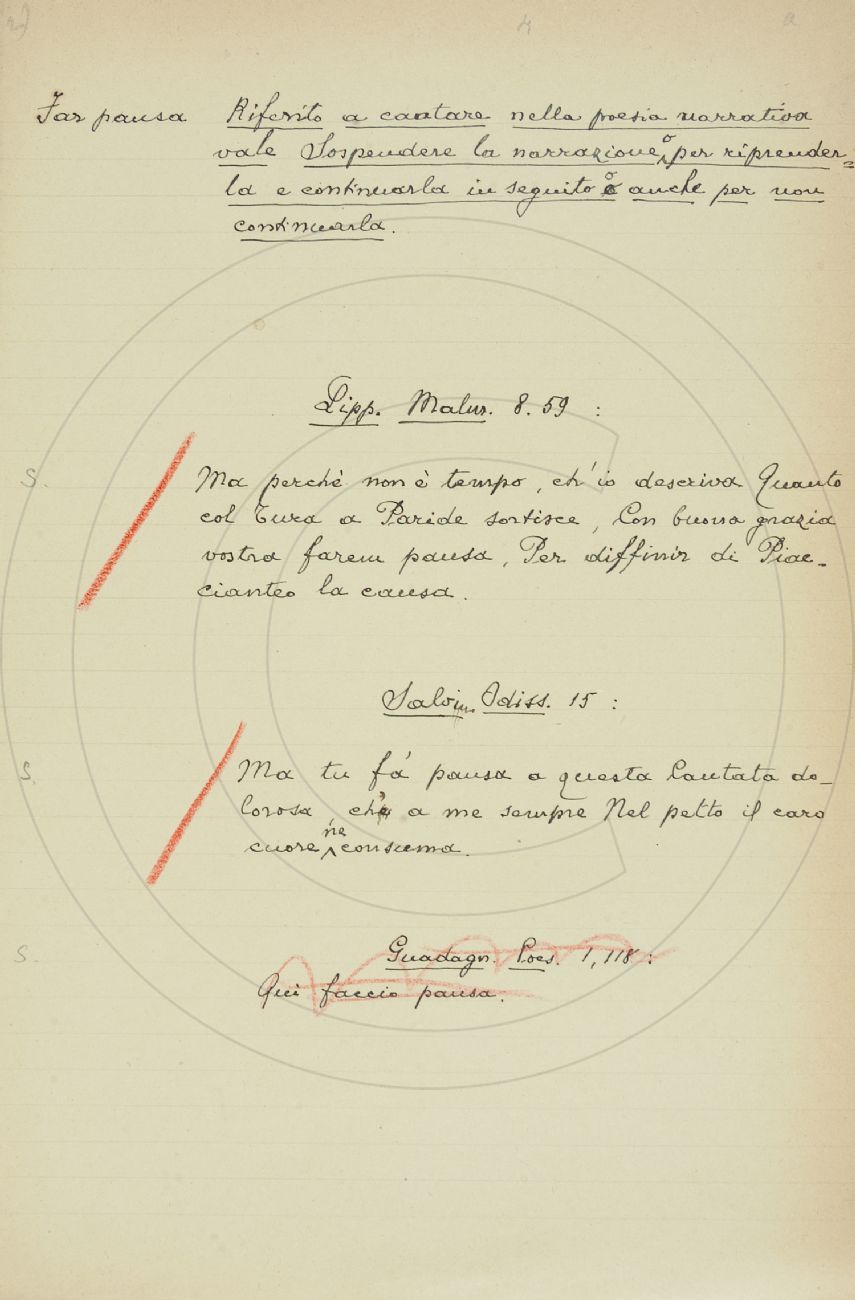 Far pausa Riferito a cantare nella poesia narrativa
vale Sospendere la narrazione, o per riprender=
la e continuarla in seguito o anche per non
continuarla.
Lipp. Malm. 8. 59 :
S.
Ma perchè non è tempo, ch' io descriva Quanto
col Tura a Paride sortisce, Con buona grazia
vostra farem pausa, Per diffinir di Piac-
cianteo la causa.
Salvin. Odiss. 15 :
S.
Ma tu fà pausa a questa Cantata do-
lorosa, che a me sempre Nel petto il caro
cuore ne consuma.
S.
Guadagn. Poes. 1, 118 :
Qui faccio pausa.